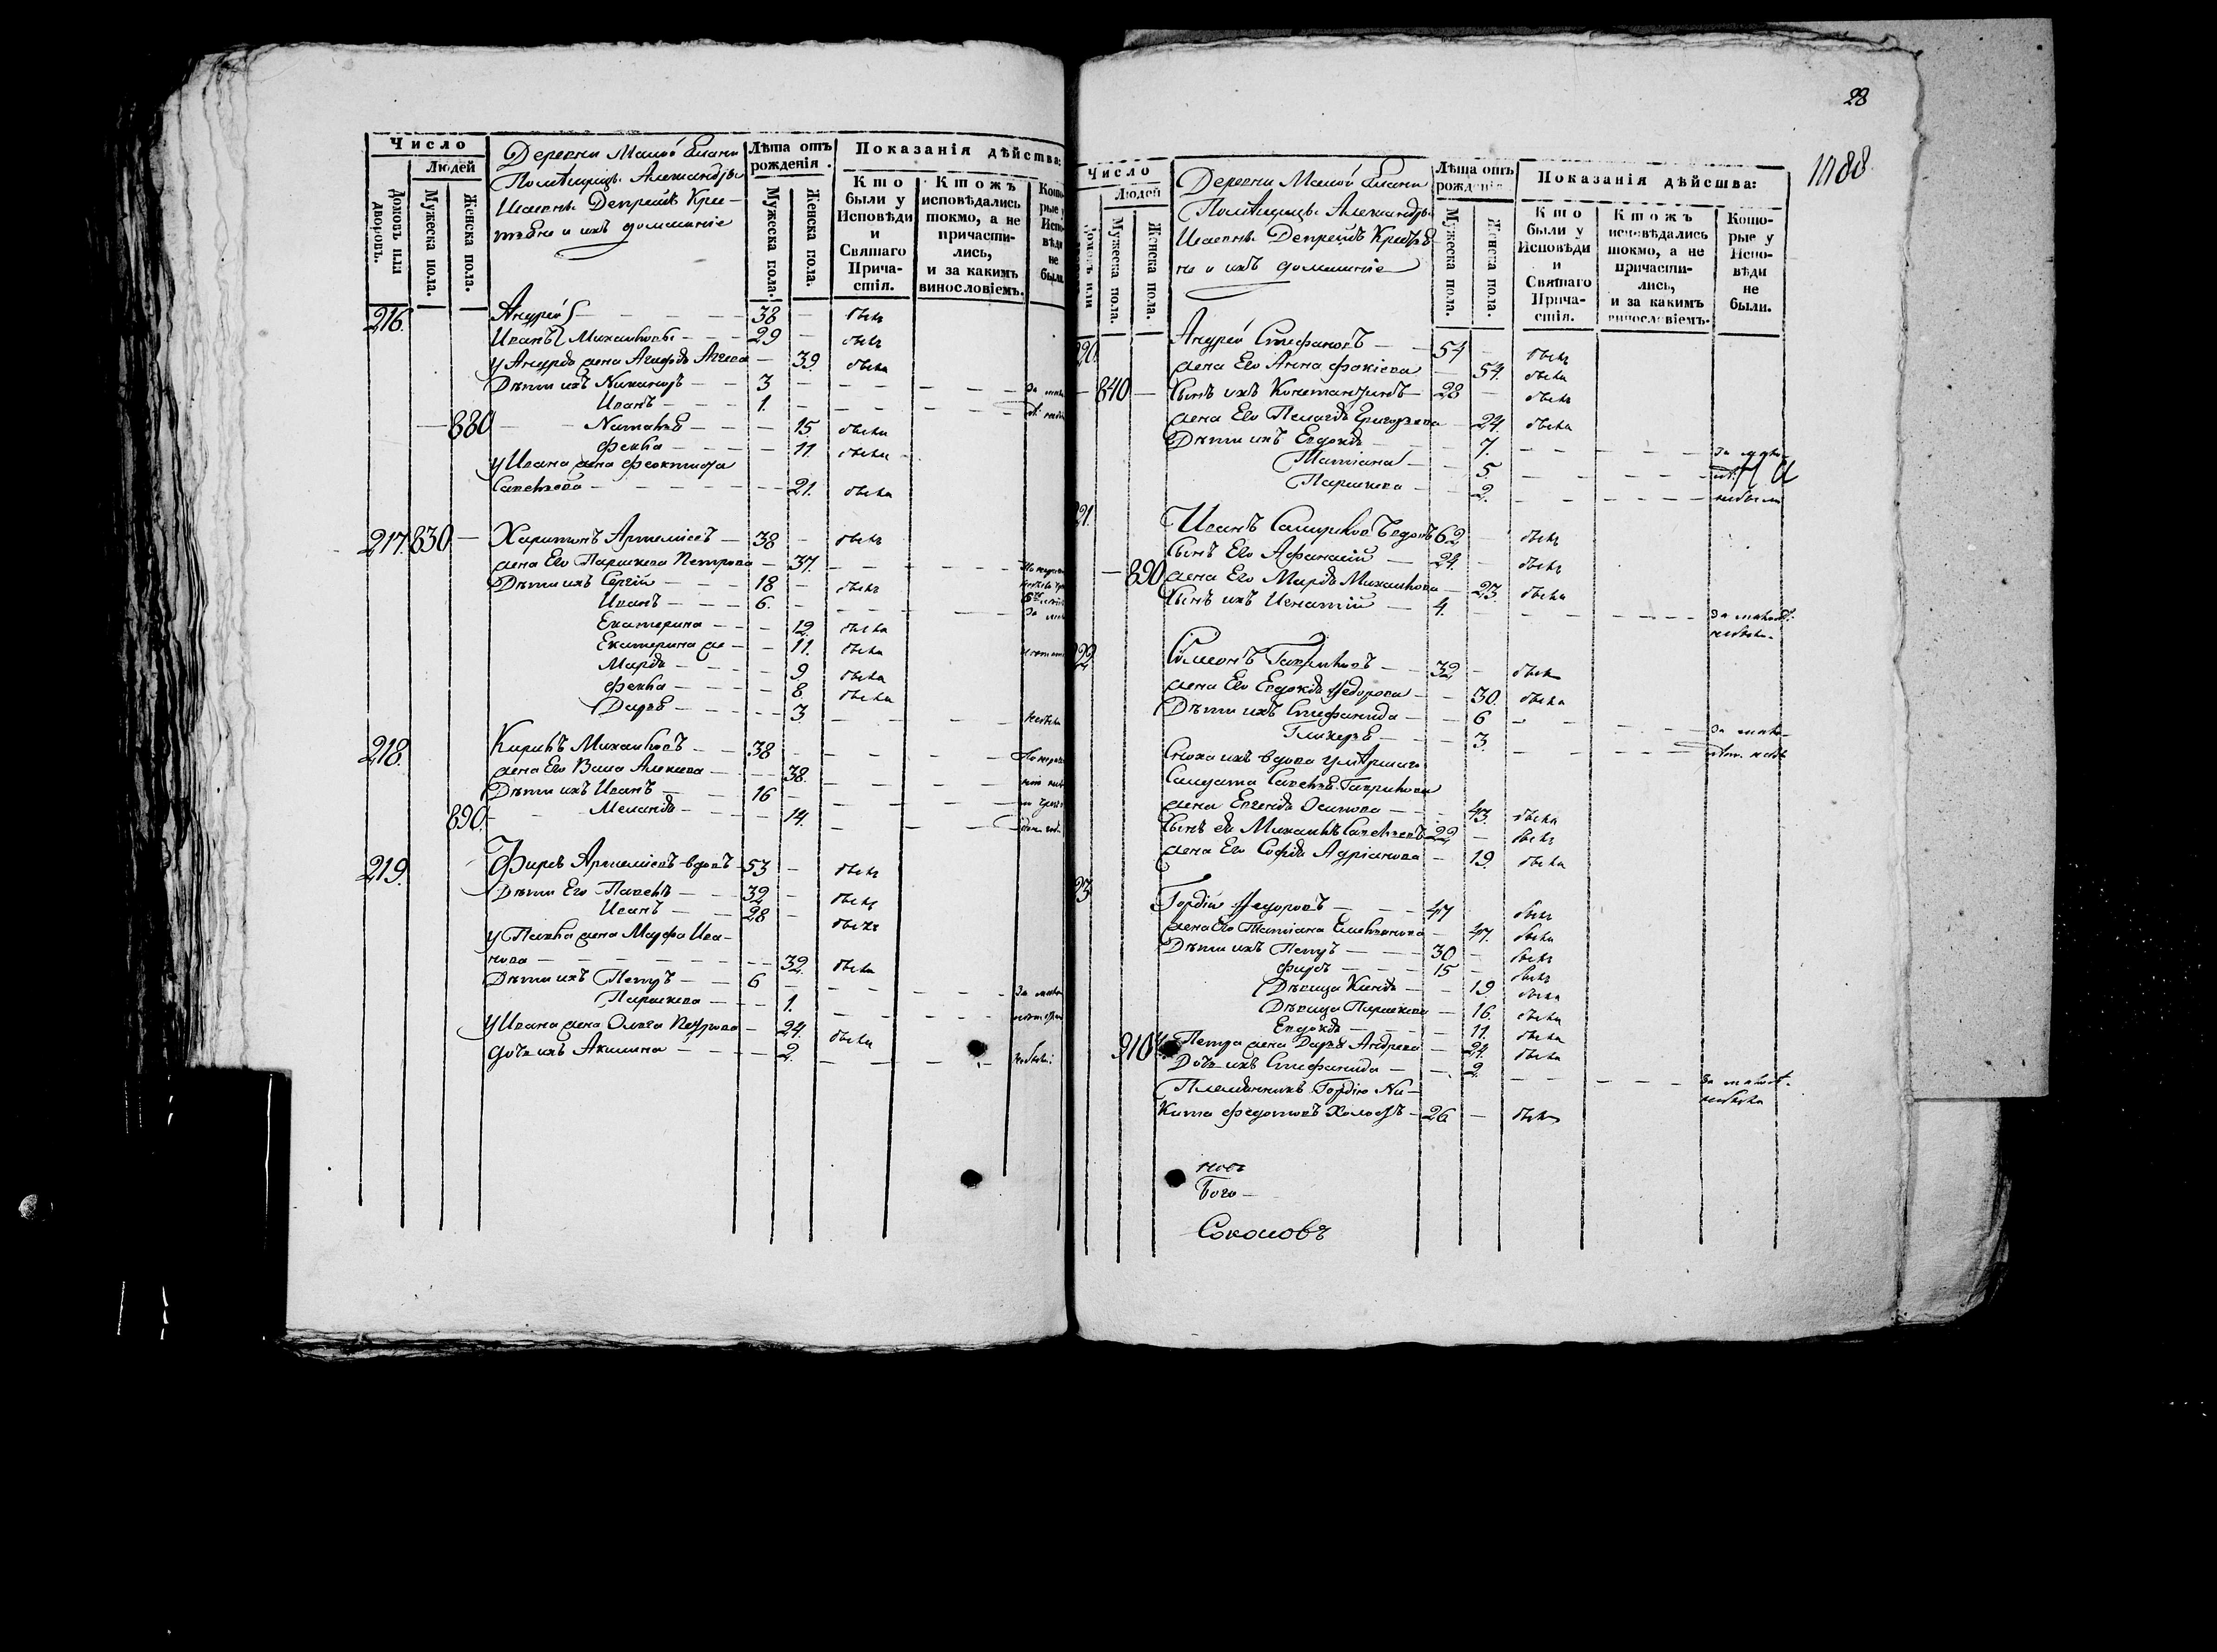 Число
Людей
Домовъ или дворовъ.
Мужеска пола.
Женска пола.
Деревни Малой Елани
Помѣщицъ Александры
Иванны Депрейдъ Кре-
стьяне и ихъ домашніе
Лѣта отъ рожденія.
Мужеска пола.
Женска пола.
Показанія дѣйства:
Кто были у Исповѣди и Святаго Причастія.
Ктожъ исповѣдались токмо, а не причастились, и за какимъ винословіемъ.
Кото-
рые у
Испо-
вѣди
не
были.
216. Андрей — 38 — былъ
Иванъ Михайловы — 29 — былъ
у Андрея жена Агафья — 39 была
Дѣти ихъ Никаноръ — 3 —
Иванъ — 1. —
880 Наталья — 15 была
Фекла — 11. была
у Ивана жена Феоктиста
Савельева — 21. была
217. 830 — Харитонъ Артеміевъ — 38 — былъ
жена Его Параскева Петрова — 37. —
Дѣти ихъ Сергій — 18 — былъ
Иванъ — 6. — за
Екатерина — 12. была
Екатерина же — 11. была
Марья — 9 была
Фекла — 8. была
Дарья — 3 —
218. Кирилъ Михайловъ — 38 —
жена Его Васса Алексеева — 38. —
Дѣти ихъ Иванъ — 16 —
890. Меланья — 14. —
219. Фирсъ Артеміевъ вдовъ 53 — былъ
Дѣти Его Павелъ — 32 — былъ
Иванъ — 28 — былъ
у Павла жена Марфа Ива-
нова — 32. была
Дѣти ихъ Петръ — 6 —
Параскева — 1. — за
у Ивана жена Ольга Петрова — 24. была
дочь ихъ Акилина — 2. —
28
1088
Число
Людей
Домовъ или
Мужеска пола.
Женска пола.
Деревни Малой Елани
Помѣщицъ Александры
Иванны Депрейдъ Крестья-
не и ихъ домашніе
Лѣта отъ рожденія.
Мужеска пола.
Женска пола.
Показанія дѣйства:
Кто были у Исповѣди и Святаго Причастія.
Ктожъ исповѣдались токмо, а не причастились, и за какимъ винословіемъ.
Которые у Исповѣди не были.
20. Андрей Стефановъ — 54 — былъ
жена Его Анна Фокіева — 54. была
840 — Сынъ ихъ Константинъ — 28 — былъ
жена Его Пелагея Григорьева — 24. была
Дѣти ихъ Евдокія — 7. — за мало-
Татіана — 5 —
Параскева — 2. — небыли
21. Иванъ вдовъ 62 — былъ
Сынъ Его Афанасій — 24. — былъ
жена Его Марья Михайлова — 23. была
Сынъ ихъ Игнатій — 4. — за малол.
небылъ
22. Симеонъ Гавриловъ — 32 — былъ
жена Его Евдокія Федорова — 30. была
Дѣти ихъ Стефанида — 6 —
Гликерья — 3. — за мало-
Сноха ихъ вдова умершаго
Солдата Савелья Гаврилова
жена Евгенья Осипова — 43. была
Сынъ ея Михаилъ Савельевъ 22 — былъ
жена Его Софья Адріанова — 19. была
23. Гордій Федоровъ — 47 былъ
жена Его Татіана Емельянова — 47. была
Дѣти ихъ Петръ — 30 — былъ
Фирсъ — 15 — былъ
Дѣвица — 19. была
Дѣвица Параскева — 16. была
Евдокія — 11. была
910 Петра жена Дарья Андреева — 24. была
Дочь ихъ Стефанида — 2. — за малол.
небыла
Племянникъ Гордію Ни-
кита Федотовъ Холостъ — 26 — былъ
Бого-
Соколовъ